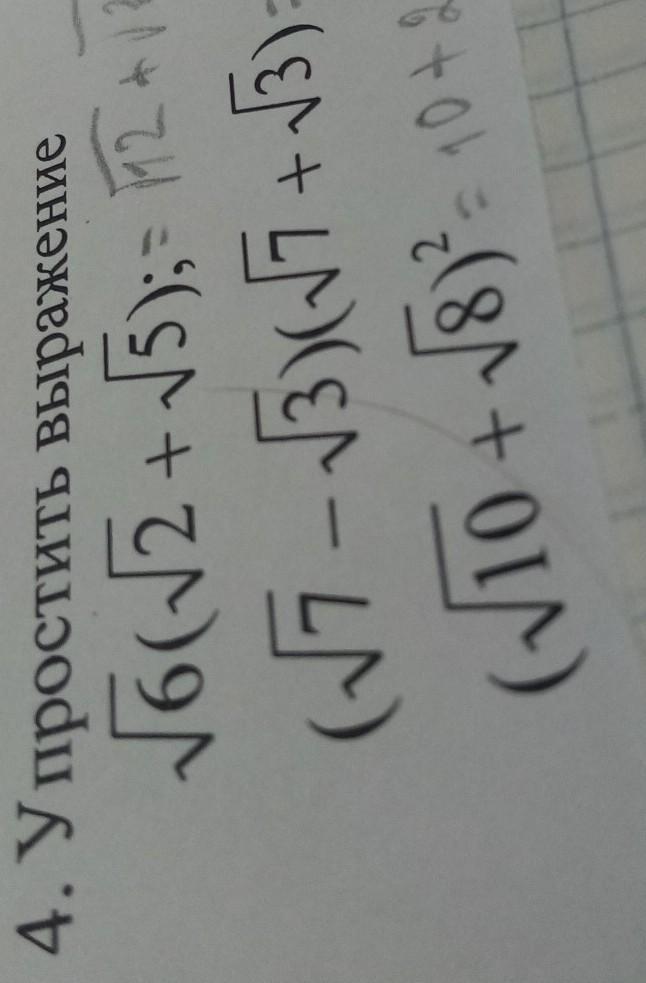 4. Упростить выражение
√6(√2 + √5); = √12 +
(√7 − √3)(√7 + √3) =
(√10 + √8)² = 10 + 2